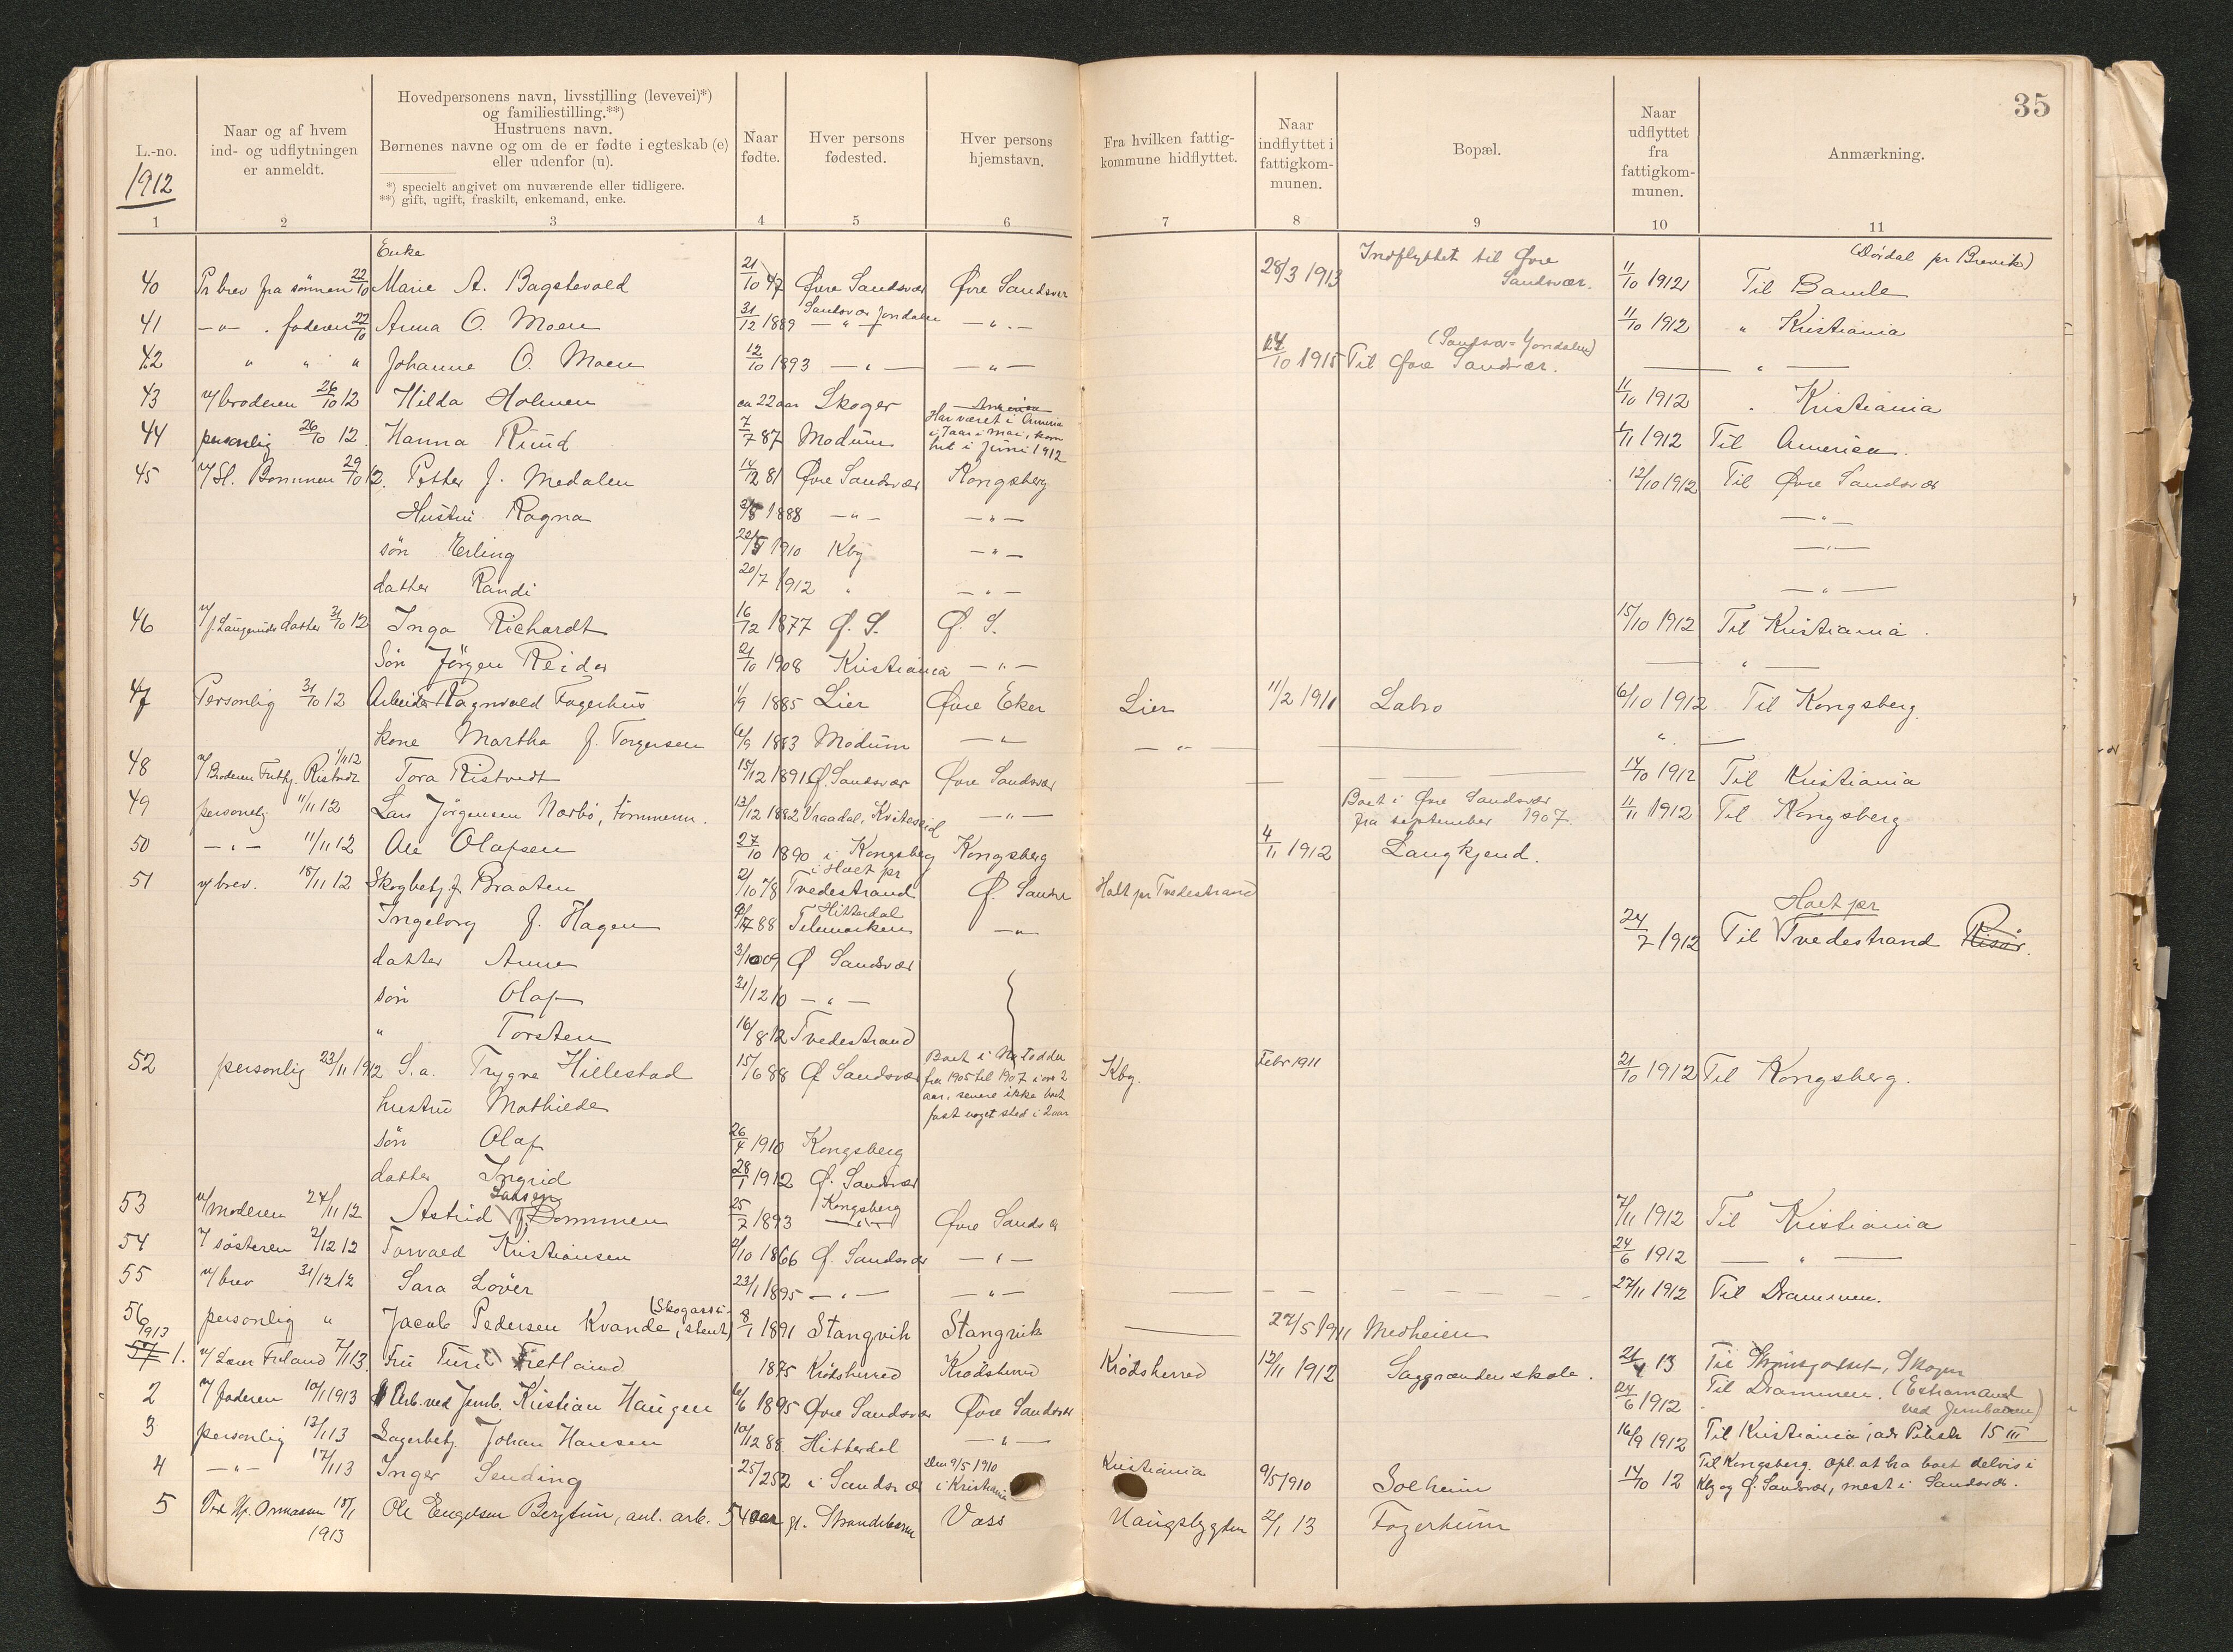 35
L.-no.
1912
1
Naar og af hvem
ind- og udflytningen
er anmeldt.
2
Hovedpersonens navn, livsstilling (levevei)*)
og familiestilling.**)
Hustruens navn.
Børnenes navne og om de er fødte i egteskab (e)
eller udenfor (u).
*) specielt angivet om nuværende eller tidligere.
**) gift, ugift, fraskilt, enkemand, enke.
3
Naar
fødte.
4
Hver persons
fødested.
5
Hver persons
hjemstavn.
6
Fra hvilken fattig-
kommune hidflyttet.
7
Naar
indflyttet i
fattigkom-
munen.
8
Bopæl.
9
Naar
udflyttet
fra
fattigkom-
munen.
10
Anmærkning.
11
Enke
40 Pr brev fra sönnen 22/10 Marie A. Bagstevold 21/10 47 Øvre Sandsvær Øvre Sandsvær 28/3 1913 Indflyttet til Øvre Sandsvær. 11/10 1912 Til Bamle (Dördal pr Brevik)
41 -"- . faderen 22/10 Anna O. Moen 31/12 1889 Sandsvær Jondalen -"- 11/10 1912 " Kristiania
42 " " " Johanne O. Moen 12/10 1893 -"- -"- 14/10 1915 Til Øvre Sandsvær. (Sandsvær=Jondalen) -"-
43 v/ broderen 26/10 12 Hilda Holmen ca 22 aar Skoger 11/10 1912 . Kristiania
44 personlig 26/10 12. Hanna Ruud 7/7 87 Modum Har været i Amerika i 7 aar i mai, kom hit i Juni 1912 1/11 1912 Til Amerika.
45 v/ Sl. Bommen 29/10 12. Petter J. Medalen 14/12 81 Øvre Sandsvær Kongsberg 12/10 1912 Til Øvre Sandsvær
Hustru Ragna 1888 -"- -"- -"-
sön Erling 1910 Kbg -"- -"-
datter Randi 20/7 1912 " -"- -"-
46 v/ J. Laugeruds datter 31/10 12 Inga Richardt 16/12 1877 Ø. S. Ø. S. 15/10 1912 Til Kristiania.
Sön Jörgen Reidar 21/10 1908 Kristiania -"- -"-
47 Personlig 31/10 12 Arbeider Ragnvald Fagerhus 1/9 1885 Lier Øvre Eker Lier 11/2 1911 Labro 6/10 1912 Til Kongsberg
kone Martha f. Torgersen 6/9 1883 Modum -"- -"- "
48 v/ Broderen Ristvedt 1/11 12 Tora Ristvedt 15/12 1891 Ø. Sandsvær Øvre Sandsvær 14/10 1912 Til Kristiania
49 personlig 11/11 12 Lars Jörgensen Norbö, tömmerm. 13/12 1882 Vraadal, Kviteseid -"- Boet i Øvre Sandsvær fra september 1907. 11/11 1912 Til Kongsberg
50 -"- 11/11 12 Ole Olafsen 27/10 1890 i Kongsberg Kongsberg 4/11 1912 Langkjend.
51 v/ brev. 18/11 12 Skogbetj. J. Braaten 2/10 78 i Holt pr Tvedestrand Ø. Sandsv Holt pr Tvedestrand
Ingeborg f. Hagen 88 Hitterdal Telemarken -"- 24/7 1912 Til Holt pr Tvedestrand Risør.
datter Anna 09 Ø Sandsvær
sön Olaf 31/12 10 -"-
" Torsten 16/8 12 Tvedestrand
52 personlig 23/11 1912 S.a. Trygve Hillestad 15/6 88 Ø Sandsvær Boet i Notodden fra 1905 til 1907 i over 2 aar, senere ikke boet fast noget sted i 2 aar Kbg. Febr 1911 21/10 1912 Til Kongsberg.
hustru Mathilde
sön Olaf 26/4 1910 Kongsberg
datter Ingrid 28/1 1912 Ø. Sandsvær
53 v/ moderen 24/11 12 Astrid Larsen f. Bommen 25/2 1893 Kongsberg Øvre Sandsvær 7/11 1912 Til Kristiania
54 v/ søsteren 2/12 12 Torvald Kristiansen 2/10 1866 Ø. Sandsvær -"- 24/6 1912 -"-
55 v/ brev 31/12 12 Sara Lovér 23/1 1895 -"- -"- 27/11 1912 Til Drammen.
56 personlig " Jacob Pedersen Kvande, (Skogassistent) 8/1 1891 Stangvik Stangvik 22/5 1911 Medheien
1913
57 1. v/ Lær. Froland 7/1 13. Fru Turi Fretland 1875 Krödsherred Krödsherred Krödsherred 12/11 1912 Saggrenden skole. 21/4 13 Til Strömsgodset, Skoger
2 v/ faderen 10/1 1913 Arb. ved Jernb. Kristian Haugen 6/6 1895 Øvre Sandsvær Øvre Sandsvær 24/6 1912 Til Drammen. (Extramand ved Jernbanen)
3 personlig 12/1 13 Lagerbetj. Johan Hansen 10/12 88 Hitterdal -"- 16/9 1912 Til Kristiania, adr Pilestr 15 III
4 -"- 17/1 13 Inger Sending 25/2 52 i Sandsvær Den 9/5 1910 i Kristiania Kristiania 9/5 1910 Solheim 14/10 12 Til Kongsberg. Opl. at ha boet delvis i Kbg og Ø. Sandsvær, mest i Sandsvær.
5 Ved Hj. Ormaasen 18/1 1913 Ole Engelsen Bergtun, anl. arb. 54 aar gl. Strandebarm Voss Haugsbygden 2/1 13 Fagerheim